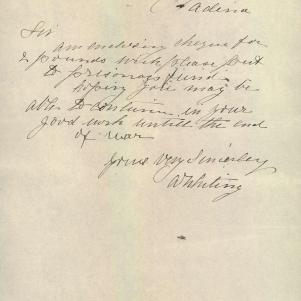 Adena
Sir
am enclosing cheque for
2 pounds wich please put
to prisoners fund
hoping you may be
able to continue in your
good work untill the end
of war
yours very Sincerley
A Whiting